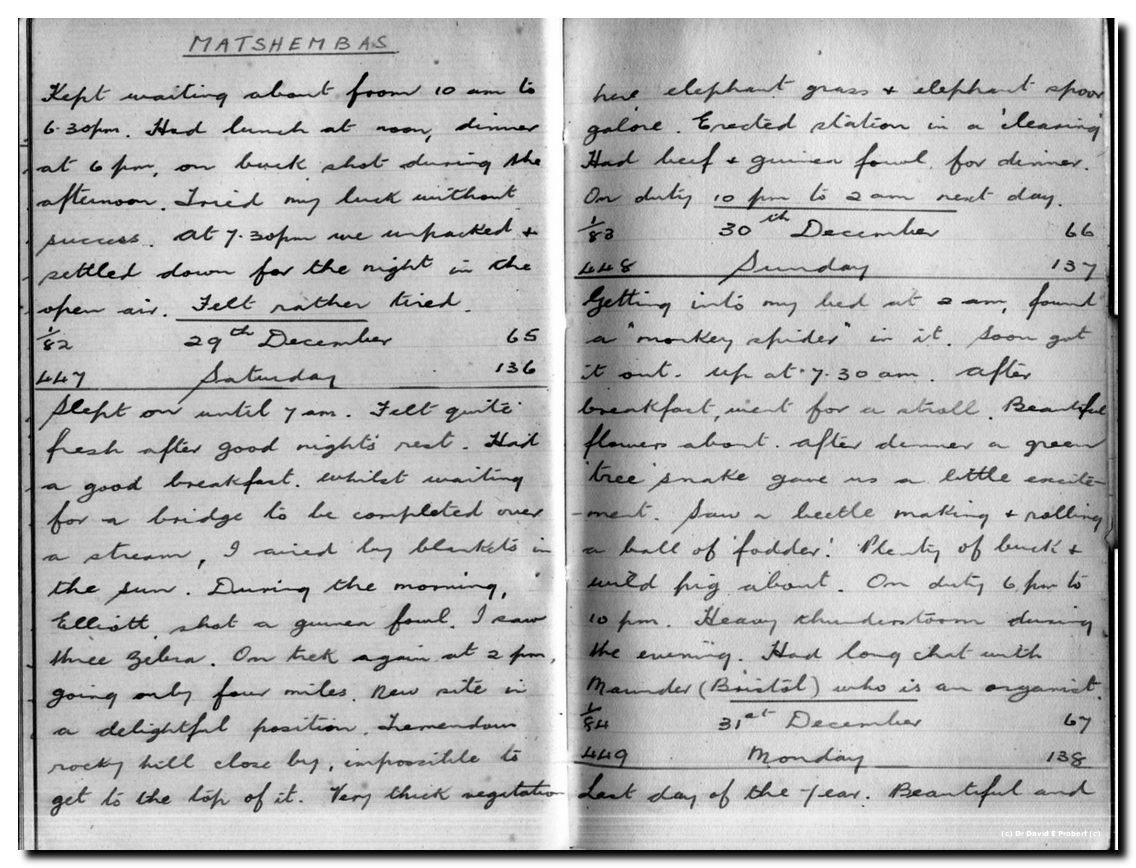 MATSHEMBAS
Kept waiting about from 10 am to
6.30pm. Had lunch at noon, dinner
at 6 pm, on buck shot during the
afternoon. Tried my luck without
success. At 7.30pm we unpacked &
settled down for the night in the
open air. Felt rather tired.
1/82 29th December 65
447 Saturday 136
Slept on until 7 am. Felt quite
fresh after good nights rest. Had
a good breakfast. Whilst waiting
for a bridge to be completed over
a stream, I aired by blankets in
the sun. During the morning,
Elliott shot a guinea fowl. I saw
three zebra. On trek again at 2 pm,
going only four miles. New site in
a delightful position. Tremendous
rocky hill close by, impossible to
get to the top of it. Very thick vegetation
here elephant grass & elephant spoor
galore. Erected station in a 'clearing'
Had beef & guinea fowl for dinner.
On duty 10 pm to 2 am next day.
1/83 30th December 66
448 Sunday 137
Getting into my bed at 2 am, found
a "monkey spider" in it. Soon got
it out. Up at 7.30 am. After
breakfast, went for a stroll. Beautiful
flowers about. After dinner a green
'tree' snake gave us a little excite-
-ment. Saw a beetle making & rolling
a ball of 'fodder'. Plenty of buck &
wild pig about. On duty 6 pm to
10 pm. Heavy thunderstorm during
the evening. Had long chat with
Maunder (Bristol) who is an organist.
1/84 31st December 67
449 Monday 138
Last day of the year. Beautiful and
(c) Dr David E Probert (c)